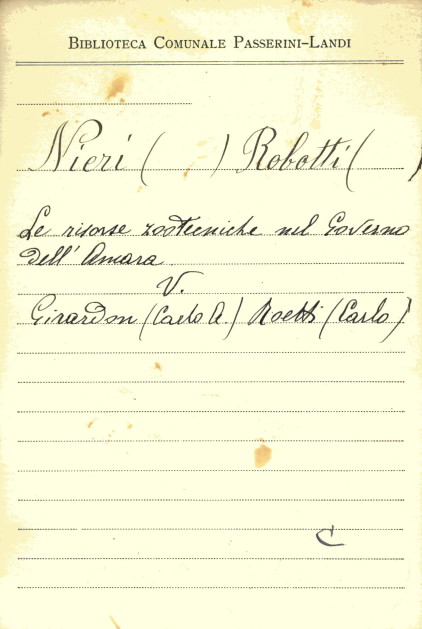 BIBLIOTECA COMUNALE PASSERINI-LANDI
Nieri ( ) Robotti ( )
Le risorse zootecniche nel Governo
dell' Amara
V.
Girardon (Carlo A.) Roetti (Carlo)
C